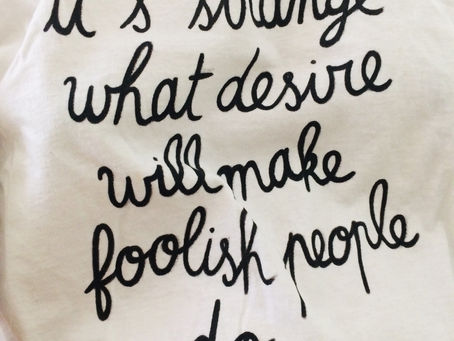 it's strange
what desire
will make
foolish people
do